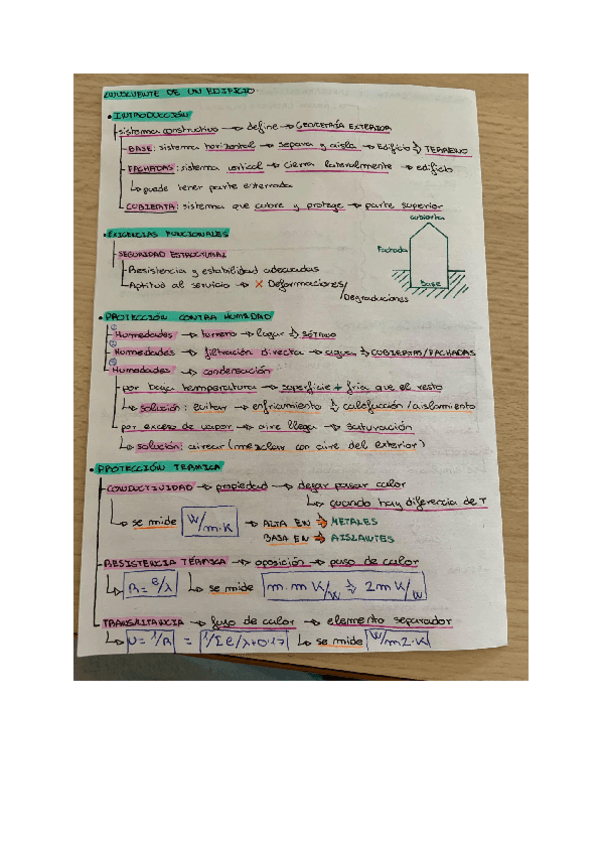 ENVOLVENTE DE UN EDIFICIO
• INTRODUCCIÓN
sistema constructivo → define → GEOMETRÍA EXTERIOR
BASE: sistema horizontal → separa y aisla → Edificio → TERRENO
FACHADAS: sistema vertical → cierra lateralmente → edificio
↳ puede tener parte enterrada
CUBIERTA: sistema que cubre y protege → parte superior
cubierta
Fachada
Base
• EXIGENCIAS FUNCIONALES
SEGURIDAD ESTRUCTURAL
Resistencia y estabilidad adecuadas
Aptitud al servicio → X Deformaciones/
Degradaciones
• PROTECCIÓN CONTRA HUMEDAD
① Humedades → terreno → lugar → SÓTANO
② Humedades → filtración directa → agua → CUBIERTAS/FACHADAS
③ Humedades → condensación
por baja temperatura → superficie + fría que el resto
↳ solución: evitar → enfriamiento → calefacción/aislamiento
por exceso de vapor → aire llega → saturación
↳ solución: airear (mezclar con aire del exterior)
• PROTECCIÓN TERMICA
CONDUCTIVIDAD → propiedad → dejar pasar calor
↳ cuando hay diferencia de T
↳ se mide W/m·K → ALTA EN → METALES
BAJA EN → AISLANTES
RESISTENCIA TÉRMICA → oposición → paso de calor
↳ R = e/λ ↳ se mide m·m K/W → 2m K/W
TRANSMITANCIA → flujo de calor → elemento separador
↳ U = 1/R = 1/Σ e/λ+0.17 ↳ se mide W/m2·K